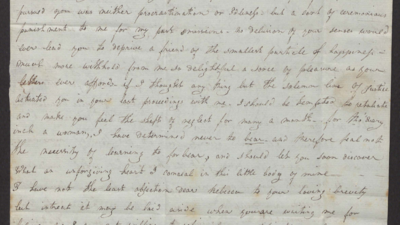 period you was neither procrastination or Illness. but a sort of ceremonious
punishment to me for my past omissions. no delusion of your senses would
ever lead you to deprive a friend of the smallest particle of happiness
much more withhold from me so delightful a source of pleasure as your
letters ever afford. if I thought any thing but the solemn line of Justice
actuated you in your last proceedings with me. I should be tempted to retaliate
and make you feel the shaft of neglect for many a month. for tho' many
such a woman, I have determined never to bear, and therefore feel not
the necessity of learning to forbear, and should let you soon discover
What an unforgiving heart I conceal in this little body of mine
I have not the least objection dear Rebecca to your loving brevity
but intreat it may be laid aside when you are writing me for